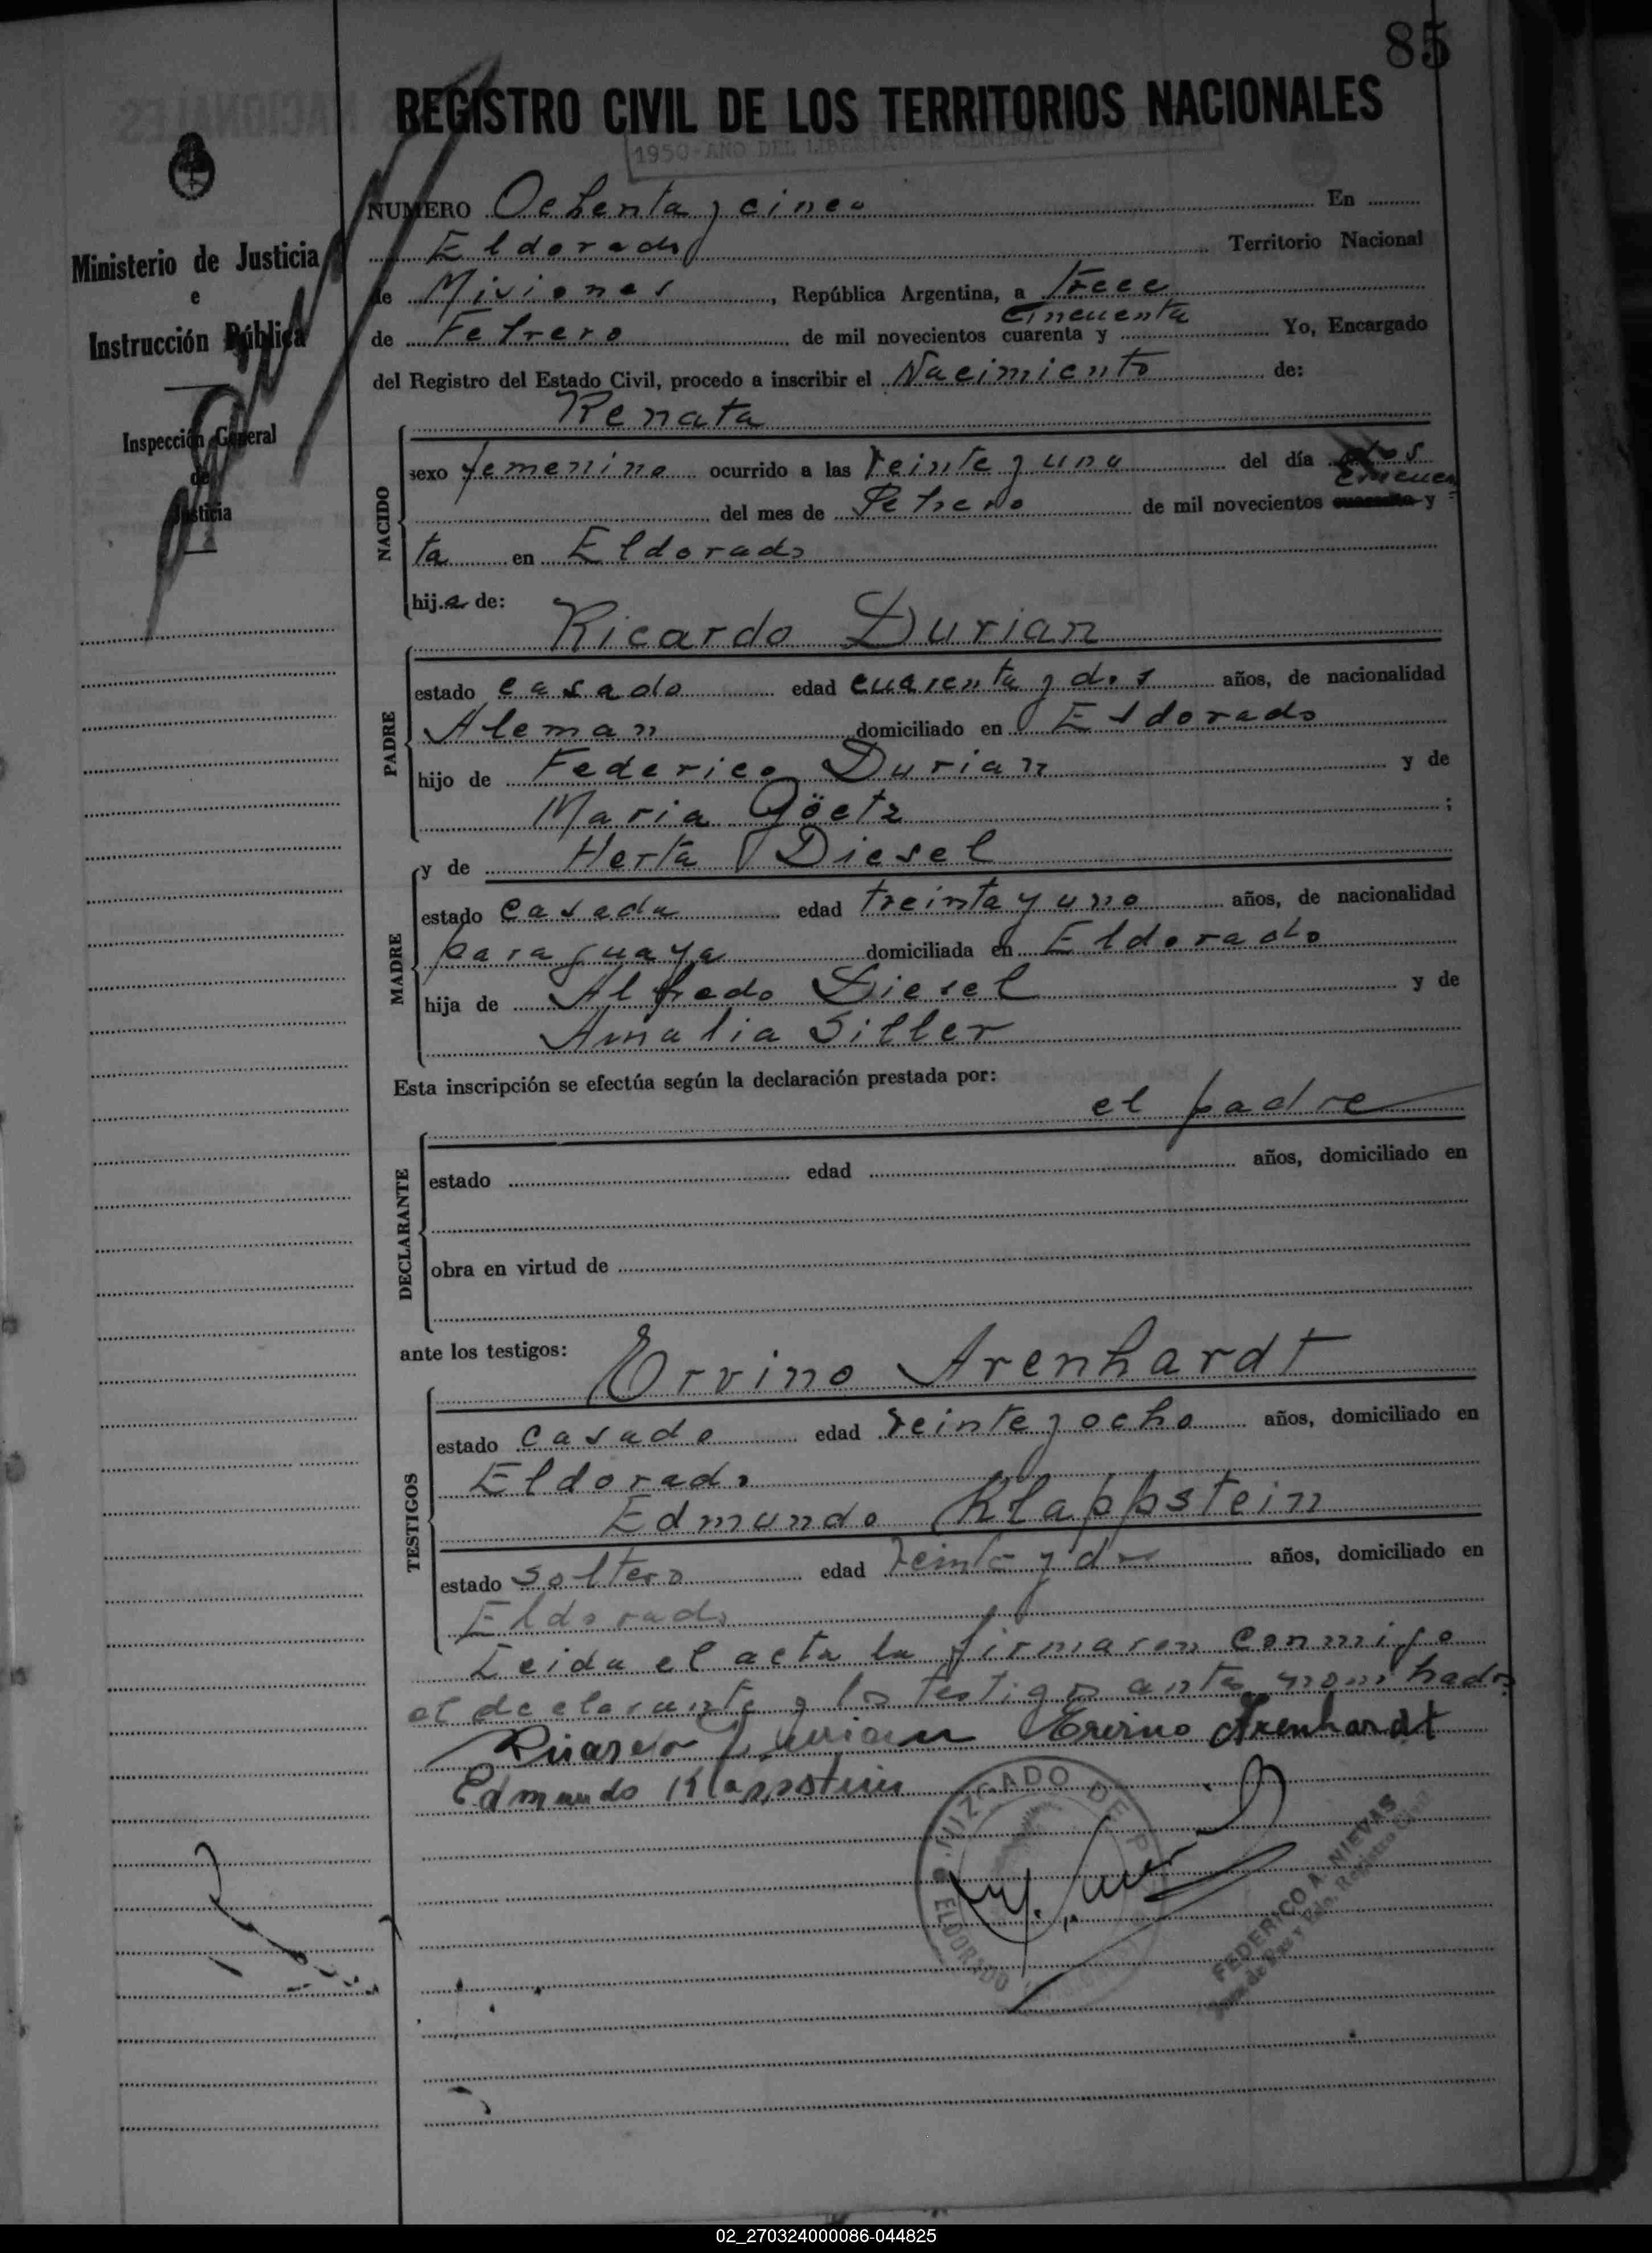 85
REGISTRO CIVIL DE LOS TERRITORIOS NACIONALES
1950-AÑO DEL LIBERTADOR GENERAL
Ministerio de Justicia
e
Instrucción Pública
Inspección General
de
Justicia
NUMERO Ochenta y cinco En
Eldorado Territorio Nacional
de Misiones, República Argentina, a trece
cincuenta
de Febrero de mil novecientos cuarenta y Yo, Encargado
del Registro del Estado Civil, procedo a inscribir el Nacimiento de:
Renata
NACIDO
sexo femenino ocurrido a las veinte y una del día dos
cincuen
del mes de Febrero de mil novecientos cuarenta y
ta en Eldorado
hija de:
Ricardo Durian
PADRE
estado casado edad cuarenta y dos años, de nacionalidad
Aleman domiciliado en Eldorado
hijo de Federico Durian y de
Maria Göetz ;
y de Herta Diesel
MADRE
estado casada edad treinta y uno años, de nacionalidad
paraguaya domiciliada en Eldorado
hija de Alfredo Diesel y de
Amalia Siller
Esta inscripción se efectúa según la declaración prestada por:
el padre
DECLARANTE
estado edad años, domiciliado en
obra en virtud de
ante los testigos:
Ervino Arenhardt
TESTIGOS
estado casado edad veinte y ocho años, domiciliado en
Eldorado
Edmundo Klappstein
estado soltero edad veinte y dos años, domiciliado en
Eldorado
Leida el acta la firmaron conmigo
el declarante y los testigos antes nombrados
Ricardo Durian Ervino Arenhardt
Edmundo Klappstein
JUZGADO DE PAZ
ELDORADO
FEDERICO A. NIEVAS
Juez de Paz y Edo. Registro Civil
02_270324000086-044825